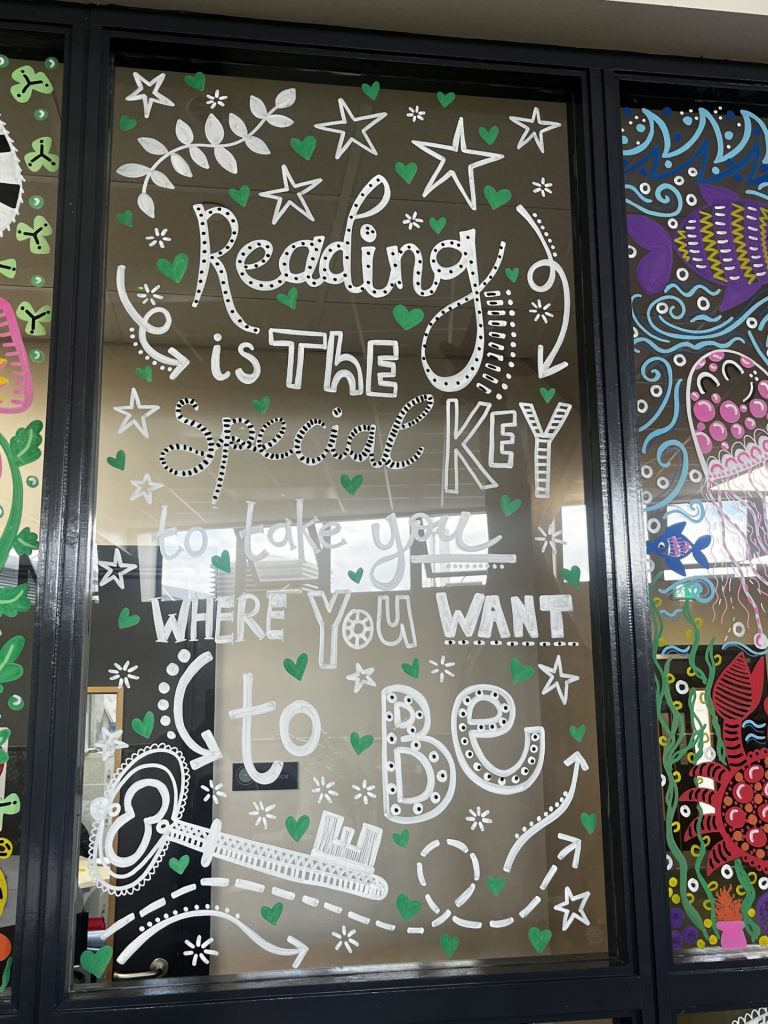 Reading
is ThE
Special KEY
to take you
WHERE YOU WANT
to Be